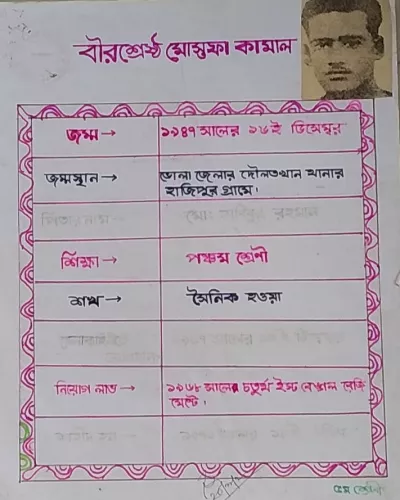 বীরশ্রেষ্ঠ মোস্তফা কামাল
জন্ম → ১৯৪৭ সালের ১৬ই ডিসেম্বর
জন্মস্থান → ভোলা জেলার দৌলতখান থানার
হাজিপুর গ্রামে।
শিক্ষা → পঞ্চম শ্রেণী
শখ → সৈনিক হওয়া
নিয়োগ লাভ → ১৯৬৮ সালের চতুর্থ ইস্ট বেঙ্গল রেজি
মেন্টে।
৫ম শ্রেণী